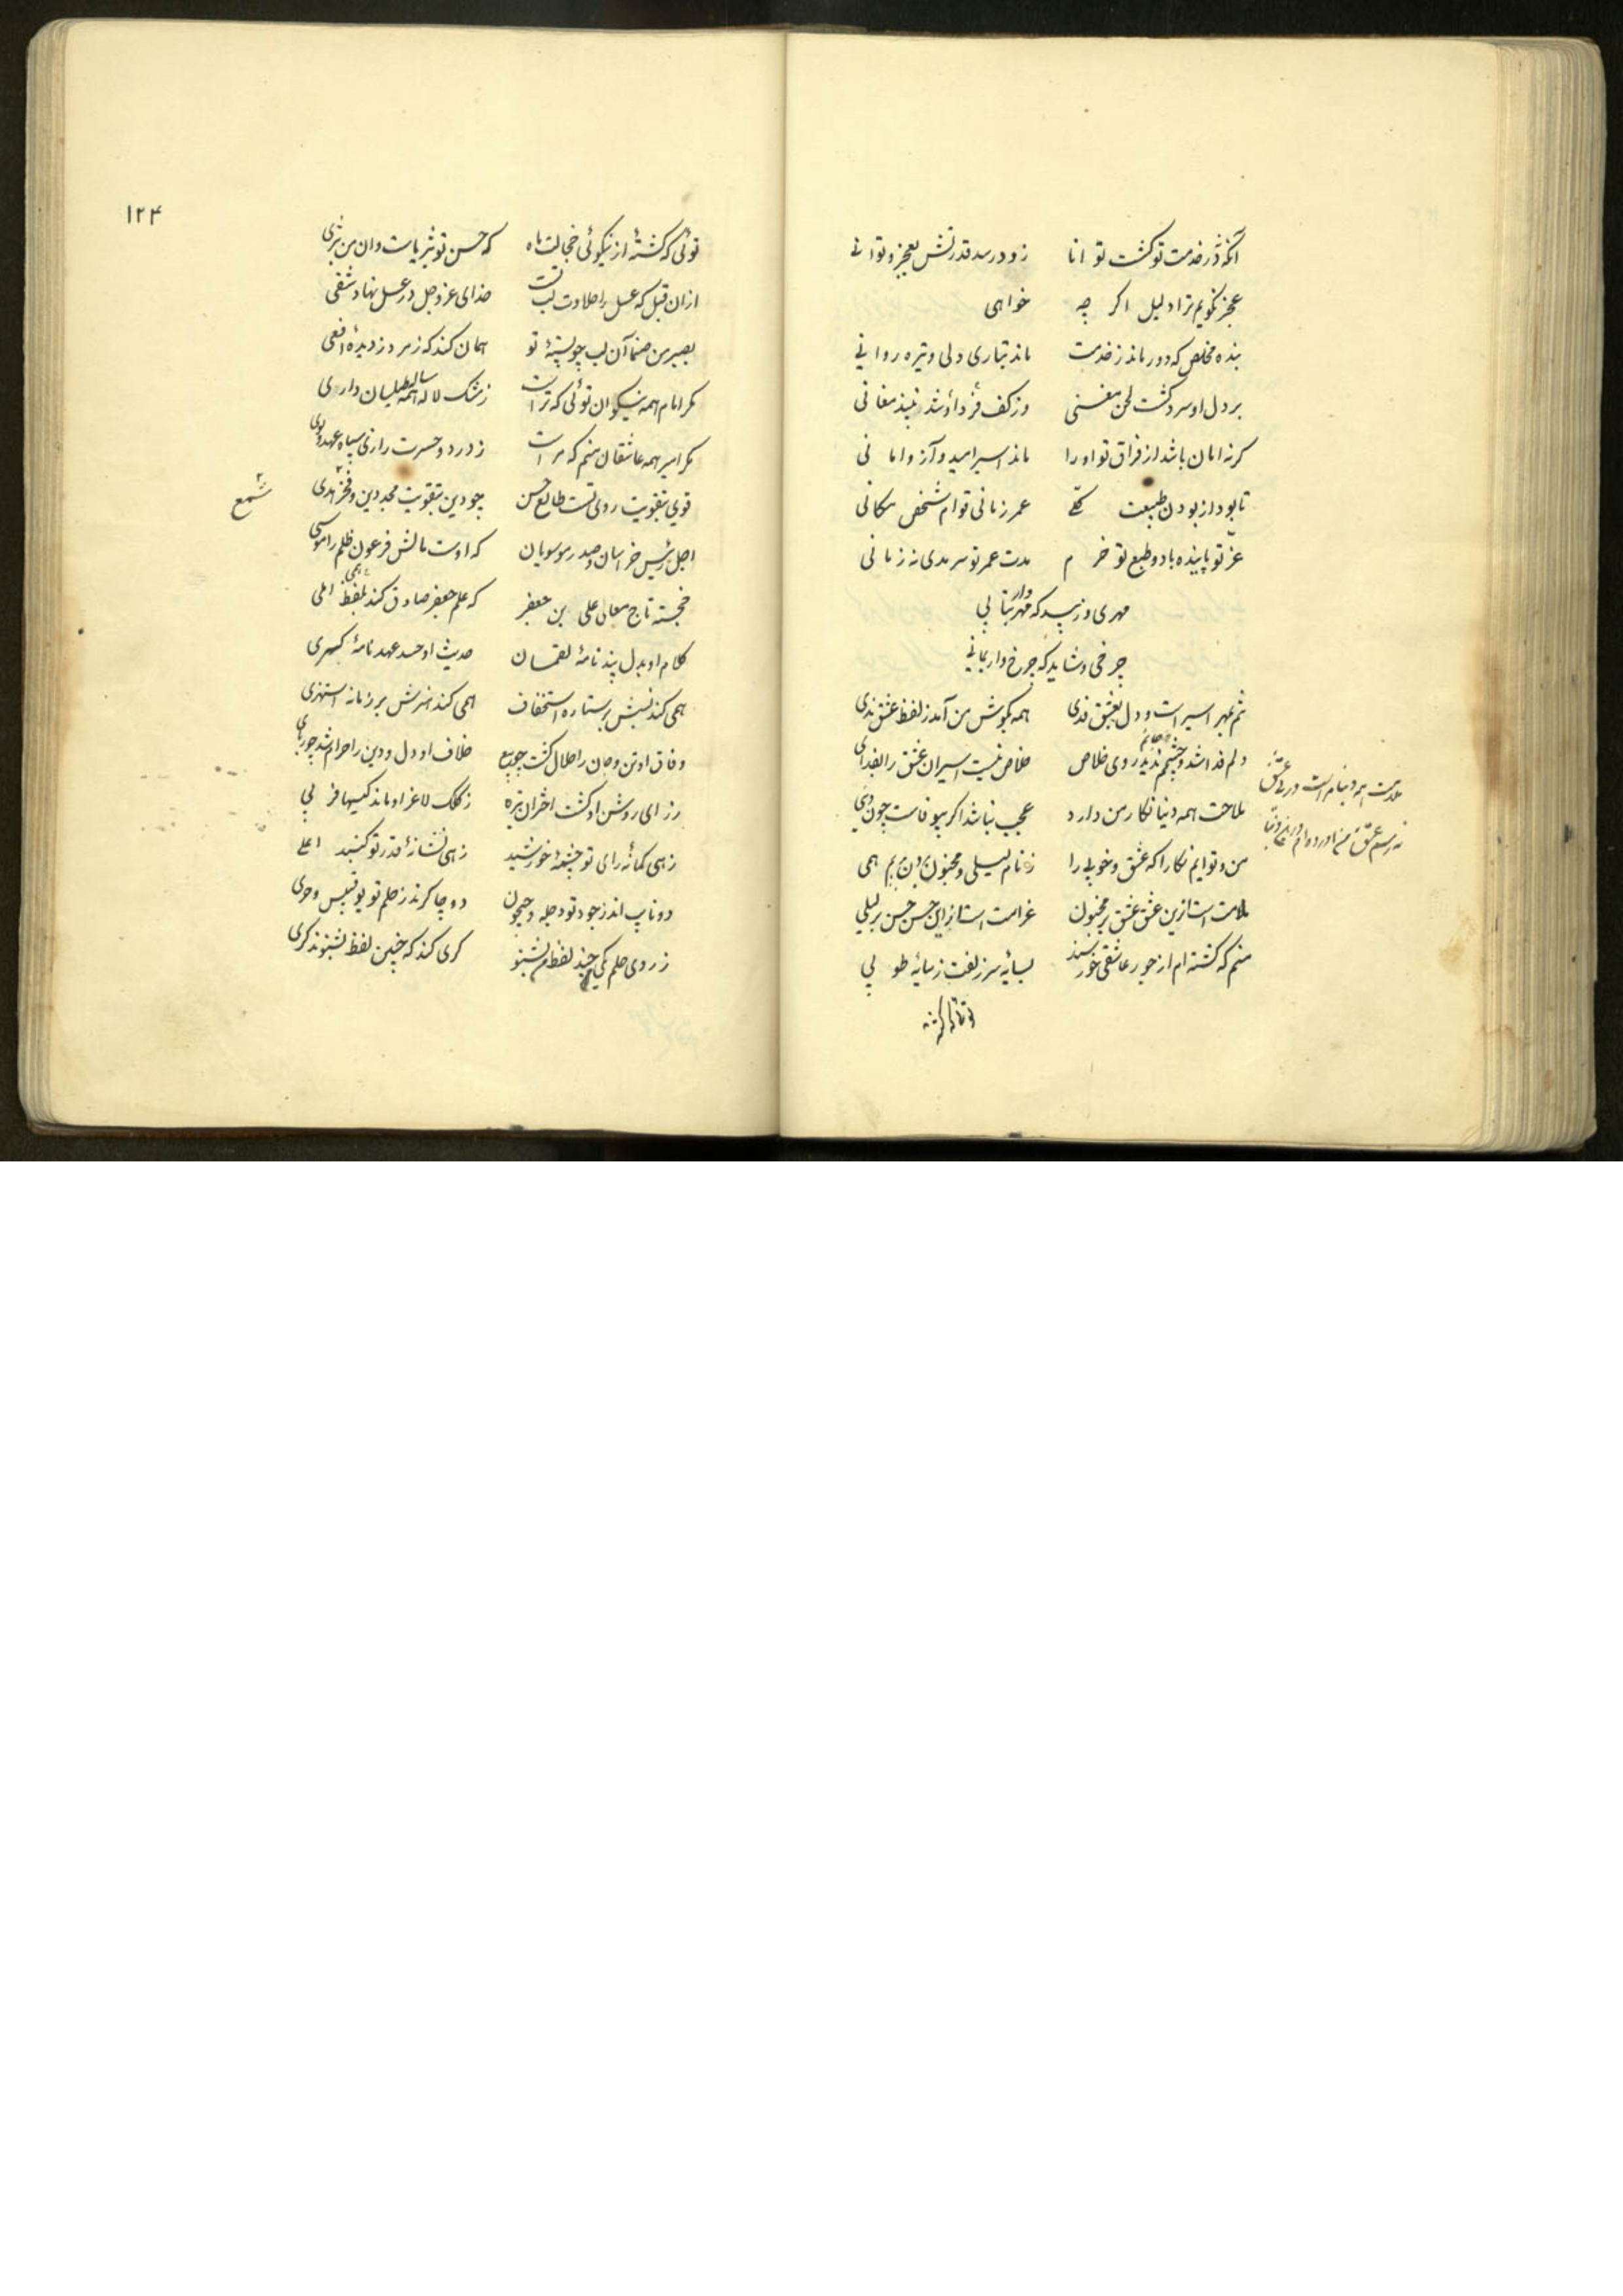 آنکه در خدمت تو کشت توانا زود رسد قدرتش بعجز و توانی
عجز نکویم ترا دلیل اکر چه خواهی
بنده مخلص که دور ماند ز خدمت ماند بتاری دلی و تیره روانی
بر دل او سرد کشت لحن مغنی وز کف او شد نبیذ مغانی
کر نه امان باشد از فراق تو او را ماند اسیر امید و آز و امانی
تا بود از بودن طبیعت کلی عمر زمانی قوام شخص مکانی
عز تو پاینده باد و طبع تو خرم مدت عمر تو سرمدی نه زمانی
مهری و زیبد که مهروار بتابی
چرخی و شاید که چرخ وار بمانی
تنم بمهر اسیر است و دل بعشق فدی همه بکوش من آمد ز لفظ عشق ندی
دلم فدا شد و چشمم ندید روی خلاص خلاص نیست اسیران عشق را بفدای
ملاحت همه دنیا نکار من دارد عجب نباشد اکر بیوفاست چون دنیی
من و توایم نکارا که عشق و خوبی را ز نام لیلی و مجنون برون بریم همی
ملامت است ازین عشق عشق بر مجنون غرامت است ازین حسن حسن بر لیلی
منم که کشته ام از جور عاشقی خورسند بسایه سر زلفت ز سایه طوبی
۱۲۴
توئی که کشته از نیکوئی خجالت ماه که حسن تو بثریاست وان من بثری
ازان قبل که عسل را حلاوت لب تست خدای عز و جل در عسل نهاد شفی
بصبر من صنما آن لب چو پسته تو همان کند که زمرد ز دیده افعی
مکر امام همه نیکوان توئی که تراست ز مشک لاله همه طیلسان داری
مکر امیر همه عاشقان منم که مراست ز درد و حسرت
قوی بتقویت روی تست طالع حسن چو دین بتقویت مجد دین و فخر هدی
شمع
اجل رئیس خراسان و صدر موسویان که اوست مالش فرعون ظلم را موسی
خجسته تاج معالی علی بن جعفر که علم جعفر صادق کند بلفظ املی
کلام او بدل پند نامه لقمان حدیث او حسد عهد نامه کسری
همی کند نسبش بر ستاره استخفاف همی کند هنرش بر زمانه استهزی
وفاق او تن و جان را حلال کشت چو بیع خلاف او دل و دین را حرام شد چو ربای
ز رای روشن او کشت اختران تیره ز کلک لاغر او ماند کیسها فربی
زهی کمانه رای تو چشمه خورشید زهی نشانه قدر تو کنبد اعلی
دو نایب اند ز جود تو دجله و جیحون دو چاکرند ز حلم تو بوقبیس و حری
ز روی حلم یکی چند لفظ من بشنو کری کند که چنین لفظ نشنوند کری